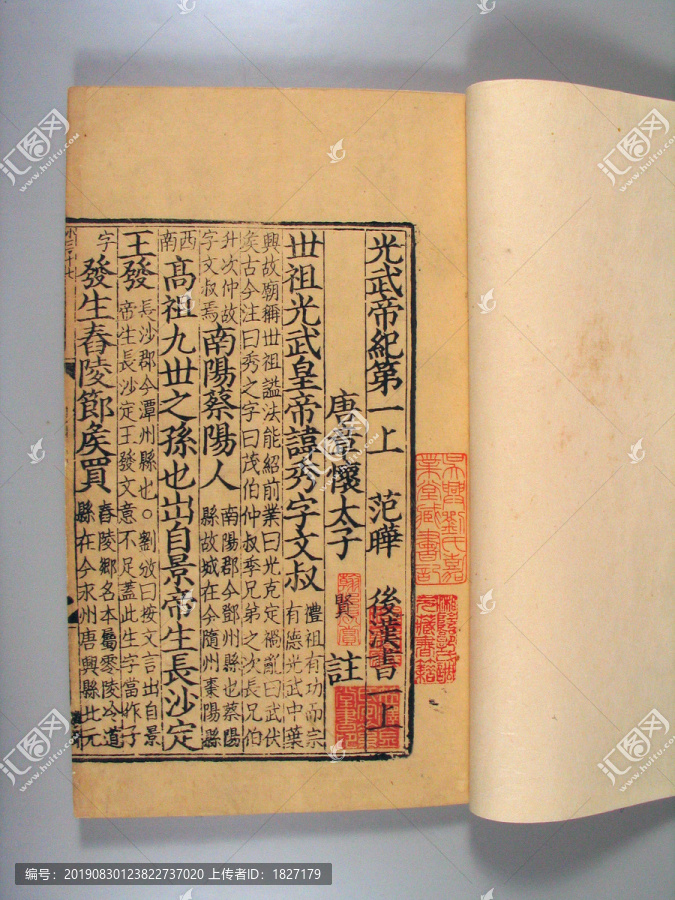 光武帝紀第一上 范曄 後漢書一上
唐章懷太子 賢 註
丗祖光武皇帝諱秀字文叔
禮祖有功而宗
有德光武中葉
興故廟稱丗祖謚法能紹前業曰光克定禍亂曰武伏
矦古今注曰秀之字曰茂伯仲叔季兄弟之次長兄伯
升次仲故
字文叔焉
南陽蔡陽人
南陽郡今鄧州縣也蔡陽
縣故城在今隨州棗陽縣
西
南
高祖九丗之孫也出自景帝生長沙定
王發
長沙郡今潭州縣也○劉攽曰按文言出自景
帝生長沙定王發文意不足蓋此生字當作子
字
發生舂陵節矦買
舂陵鄉名本屬零陵泠道
縣在今永州唐興縣北元
吳興劉氏嘉
業堂藏書記
汇图网
www.huitu.com
编号：20190830123822737020 上传者ID：1827179